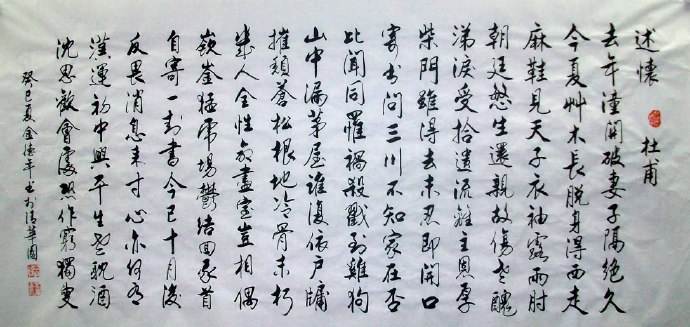 述懷 杜甫
去年潼關破妻子隔絕久
今夏艸木長脫身得西走
麻鞋見天子衣袖露兩肘
朝廷愍生還親故傷老醜
涕淚受拾遺流離主恩厚
柴門雖得去未忍即開口
寄書問三川不知家在否
比聞同罹禍殺戮到雞狗
山中漏茅屋誰復依戶牖
摧頹蒼松根地冷骨未朽
幾人全性命盡室豈相偶
嶔崟猛虎場鬱結回我首
自寄一封書今已十月後
反畏消息來寸心亦何有
漢運初中興平生老耽酒
沈思歡會處恐作窮獨叟
癸巳夏金德年书於清華園